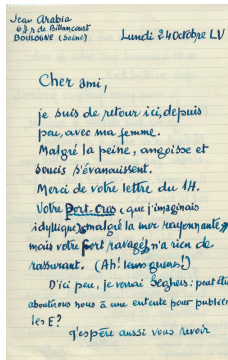 Jean Arabia
64 r de Billancourt
BOULOGNE (Seine)
Lundi 24 Octobre LV
Cher ami,
je suis de retour ici, depuis
peu, avec ma femme.
Malgré la peine, angoisse et
soucis s'évanouissent.
Merci de votre lettre du 14.
Votre Port-Cros (que j'imaginais
idyllique, malgré la mer rayonnante,
mais votre fort ravagé) n'a rien de
rassurant. (Ah! leurs guerres!)
D'ici peu, je verrai Seghers: peut être
aboutirons nous à une entente pour publier
les E?
J'espère aussi vous revoir